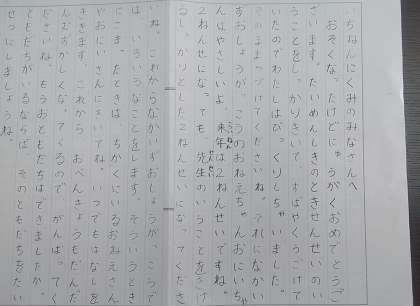 いちねんにくみのみなさんへ
おそくなったけどにゅうがくおめでとうご
ざいます。たいめんしきのときせんせいのい
うことをしっかりきいて、すばやくうごけて
いたのでわたしはびっくりしちゃいました。
そのままつづけてくださいね。それになかい
ずおしょうが、こうのおねえちゃんおにいちゃ
んはやさしいよ。来年は2ねんせいですね。
2ねんせいになっても、先生のいうことをきけ
るしっかりとした2ねんせいになってくださ
いね。これからなかいずおしょうが、こうで
は、いろいろなことをします。そういうとき
にこまったときは、ちかくにいるおねえさん
やおにいさんにきいてね。いつでもはなしを
ききます。これから、おべんきょうもだんだ
んむずかしくなってくるので、がんばってく
ださいね。もうおともだちはできましたか。
ともだちがいるならば、そのともだちをたい
せつにしましょうね